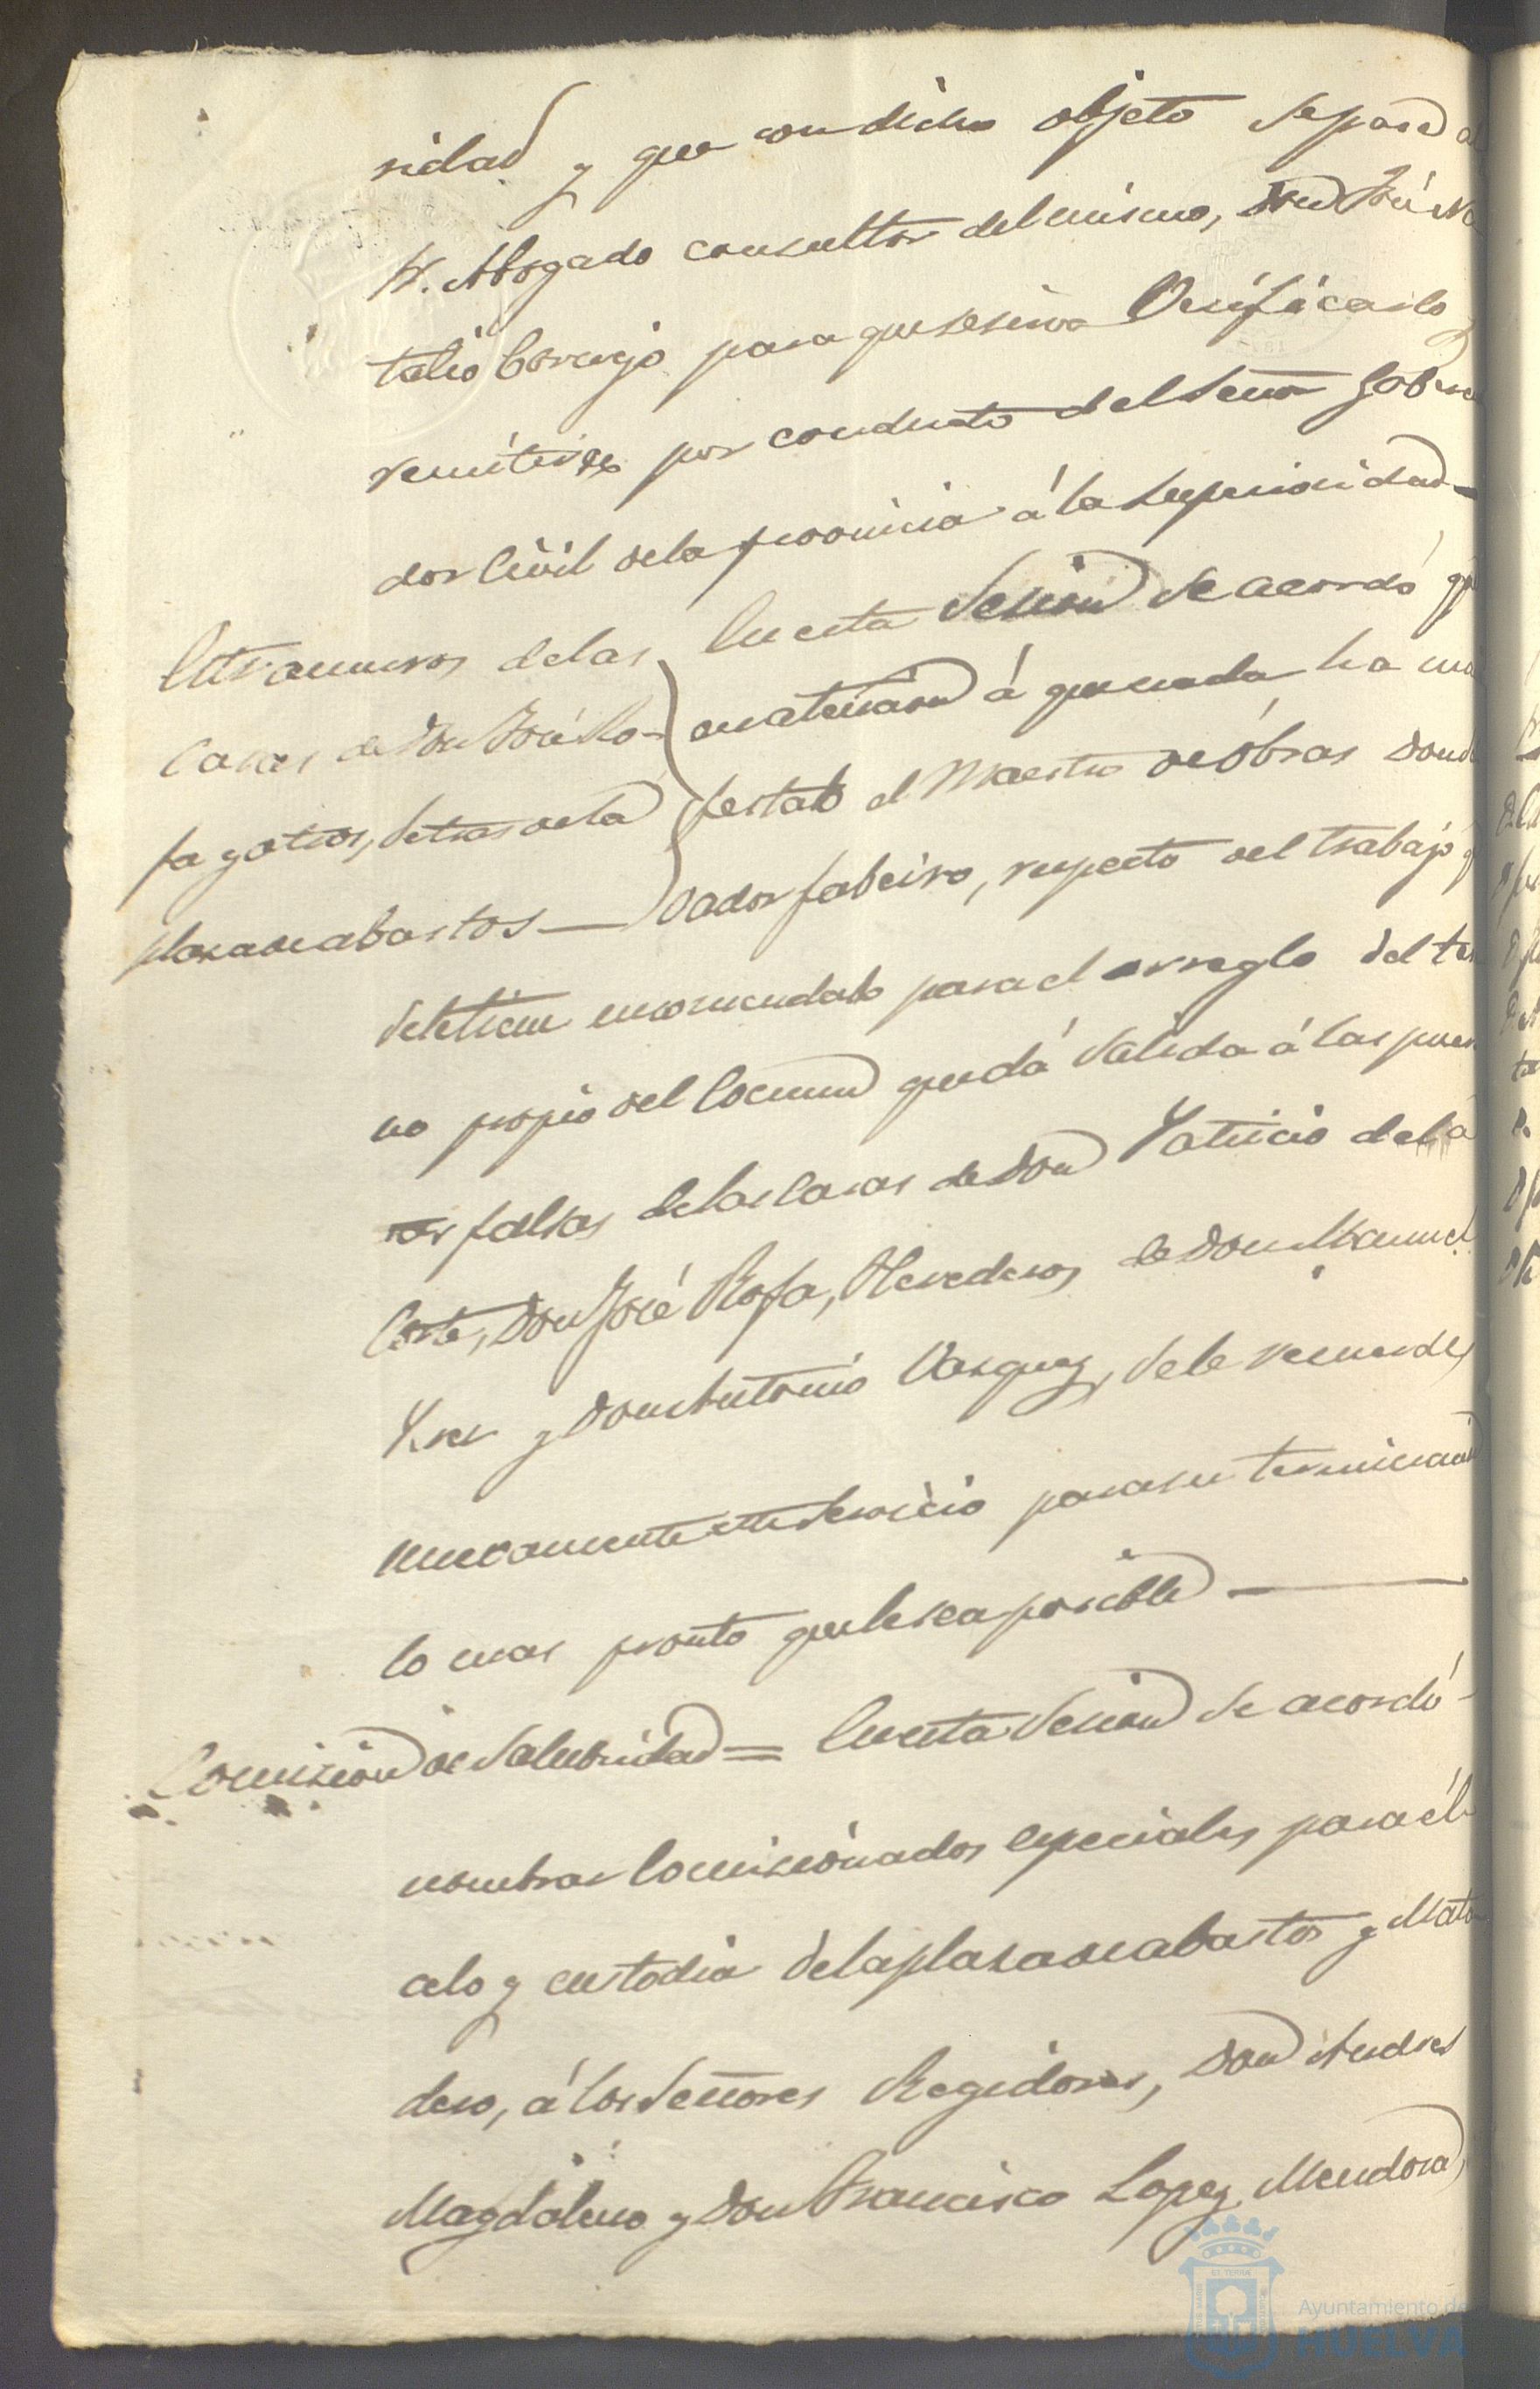 ridad y que con dicho objeto se pase al
Sr. Abogado consultor del mismo, Don José Na
talio Cornejo para que se sirva Verificarlo y
remitirse por conducto del Señor Goberna
dor Civil de la provincia á la Superioridad -
Entranuros de las
Casas de Don José Ro-
fa y otros, detras de la
plaza de abastos —
En esta Sesion Se acordó que
en atencion á que nada ha mani
festado el Maestro de Obras Don
vador fabeiro, respecto del trabajo q
se le tiene encomendado para el arreglo del ter
no propio del Comun que dá Salida á las puer
tas falsas de las Casas de Don Patricio de la
Corte, Don José Rofa, Herederos de Don Manuel
y Don Antonio Vasquez, se le recuerde
nuevamente este Servicio para su terminacion
lo mas pronto que le sea posible —
Comision de Salubridad = En esta Sesion se acordó
nombrar Comisionados especiales para él
celo y custodia de la plaza de abastos y Mata
dero, á los Señores Regidores, Don Andres
Magdaleno y Don Francisco Lopez Mendoza,
Ayuntamiento de
HUELVA